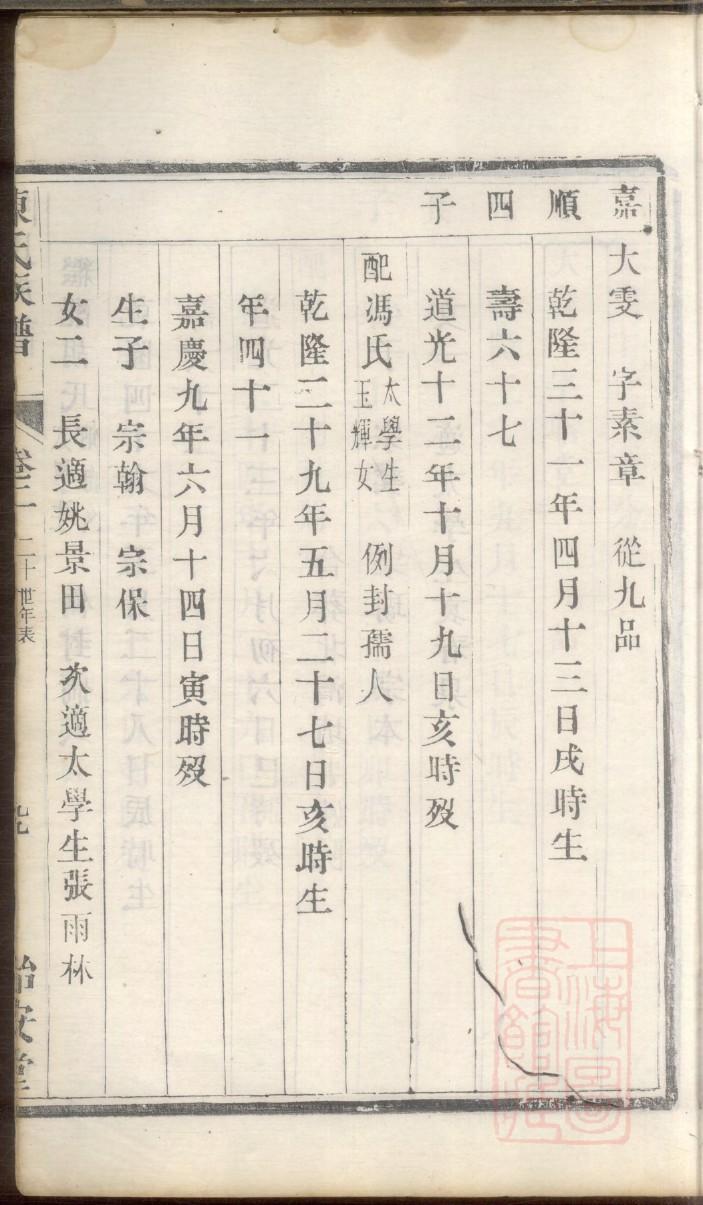 嘉順四子
大雯　字素章　從九品
乾隆三十一年四月十三日戌時生
壽六十七
道光十二年十月十九日亥時歿
配馮氏太學生玉輝女　例封孺人
乾隆二十九年五月二十七日亥時生
年四十一
嘉慶九年六月十四日寅時歿
生子　宗翰　宗保
女二　長適姚景田　次適太學生張雨林
陳氏族譜　卷二　二十世年表　九　治安堂
上海圖書館藏